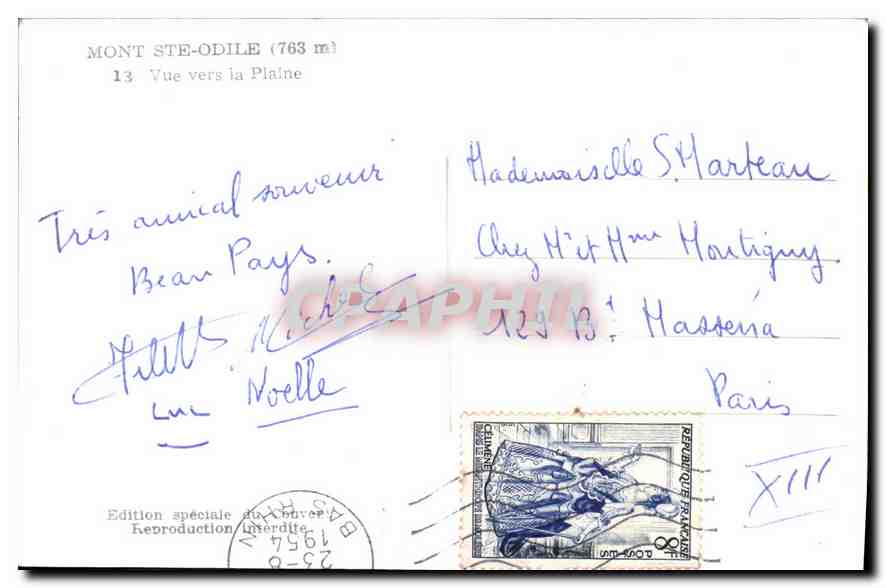 MONT STE-ODILE (763 m)
13 Vue vers la Plaine
Très amical souvenir
Beau Pays.
Michel
Luc Noelle
Edition spéciale du Couvent
Reproduction interdite
Mademoiselle S. Marteau
Chez Mr et Mme Montigny
129 Bd Masséna
Paris
XIII
CPAPHIL
REPUBLIQUE FRANÇAISE
8F
POSTES
CÉLIMÈNE
BAS RHIN
23-8
1954